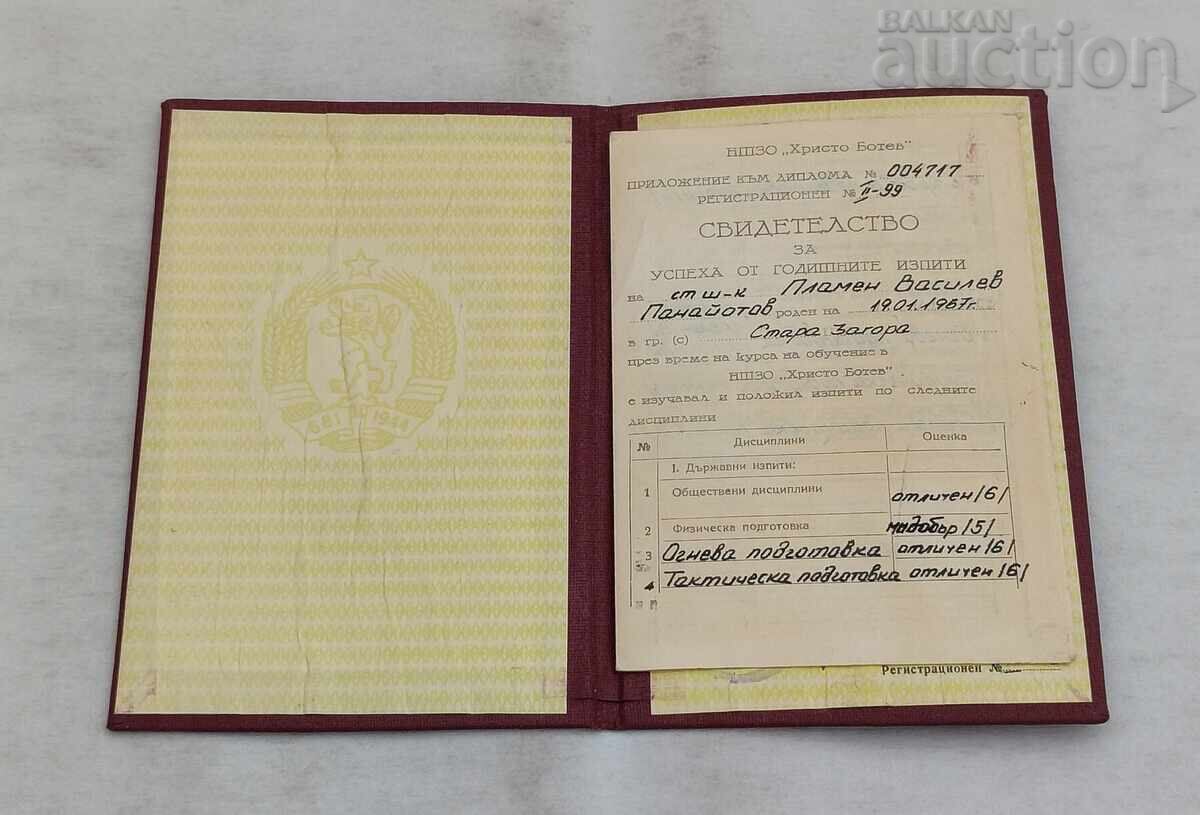 BALKAN
auction
НШЗО „Христо Ботев"
ПРИЛОЖЕНИЕ КЪМ ДИПЛОМА № 004717
РЕГИСТРАЦИОНЕН № II-99
СВИДЕТЕЛСТВО
ЗА
УСПЕХА ОТ ГОДИШНИТЕ ИЗПИТИ
на ст ш-к Пламен Василев
Панайотов роден на 19.01.1967г.
в гр. (с) Стара Загора
през време на курса на обучение в
НШЗО „Христо Ботев".
е изучавал и положил изпити по следните
дисциплини
№ Дисциплини Оценка
I. Държавни изпити:
1 Обществени дисциплини отличен /6/
2 Физическа подготовка мн добър /5/
3 Огнева подготовка отличен /6/
4 Тактическа подготовка отличен /6/
681 1944
Регистрационен №